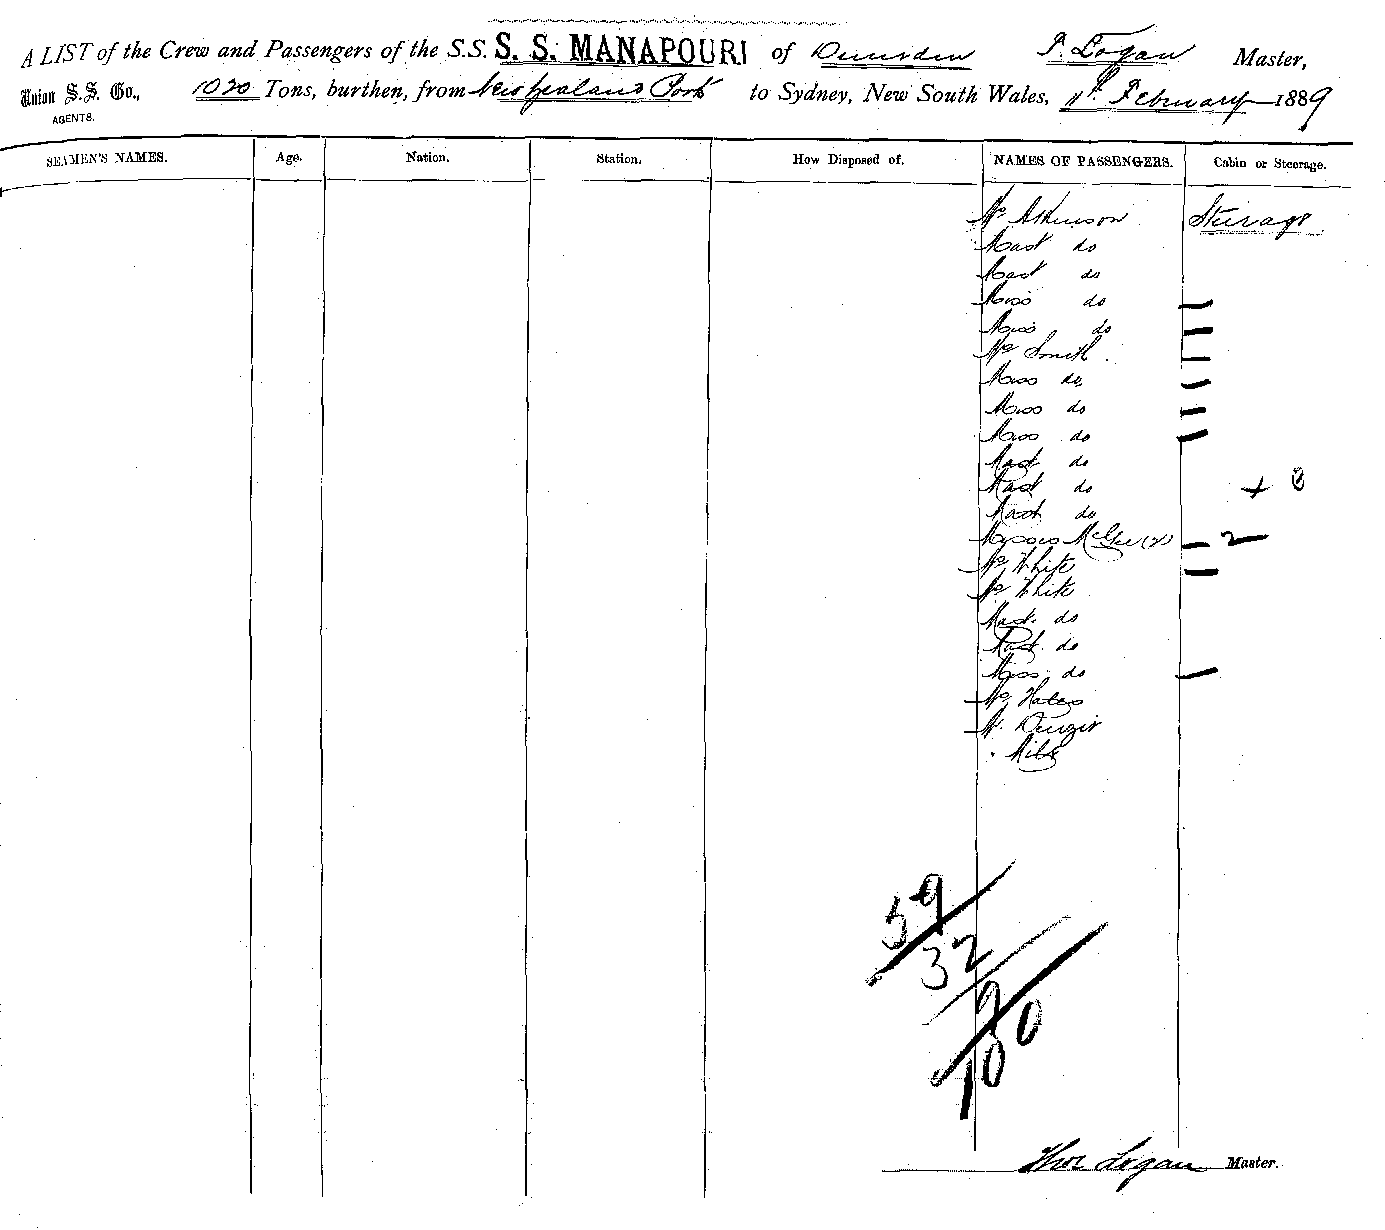 A LIST of the Crew and Passengers of the S.S. S. S. MANAPOURI of Dunedin T. Logan Master,
Union S.S. Co., 1020 Tons, burthen, from New Zealand Ports to Sydney, New South Wales, February 1889
AGENTS.
SEAMEN'S NAMES. Age. Nation. Station. How Disposed of. NAMES OF PASSENGERS. Cabin or Steerage.
Mrs Atkinson Steerage
Mast do
Mast do
Miss do
Miss do
Mrs Smith
Miss do
Miss do
Miss do
Mast do
Mast do + 3
Mast do
Misses McGee (2) 2
Mr White
Mrs White
Mast. do
Mast. do
Miss do
Mr
Mr
59
32
9
100
Thos Logan Master.